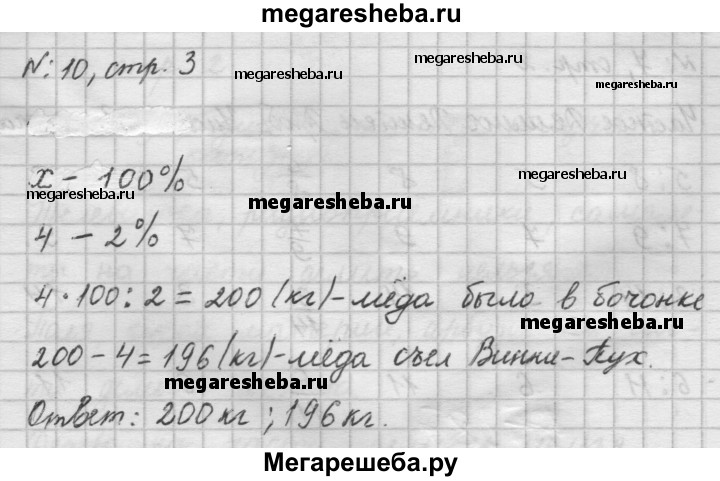 megaresheba.ru
№ 10, стр. 3
megaresheba.ru
megaresheba.ru
x – 100%
megaresheba.ru
megaresheba.ru
4 – 2%
4·100:2=200 (кг)–мёда было в бочонке
megaresheba.ru
200–4=196(кг)–мёда съел Винни-Пух.
megaresheba.ru
Ответ: 200кг; 196кг.
Мегарешеба.ру